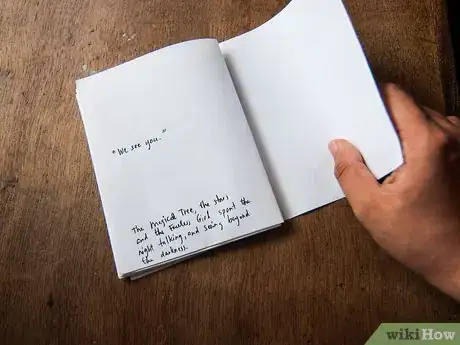 "We see you."
The Mystical Tree, the stars
and the Fearless Girl spent the
night talking, and seeing beyond
the darkness.
wikiHow